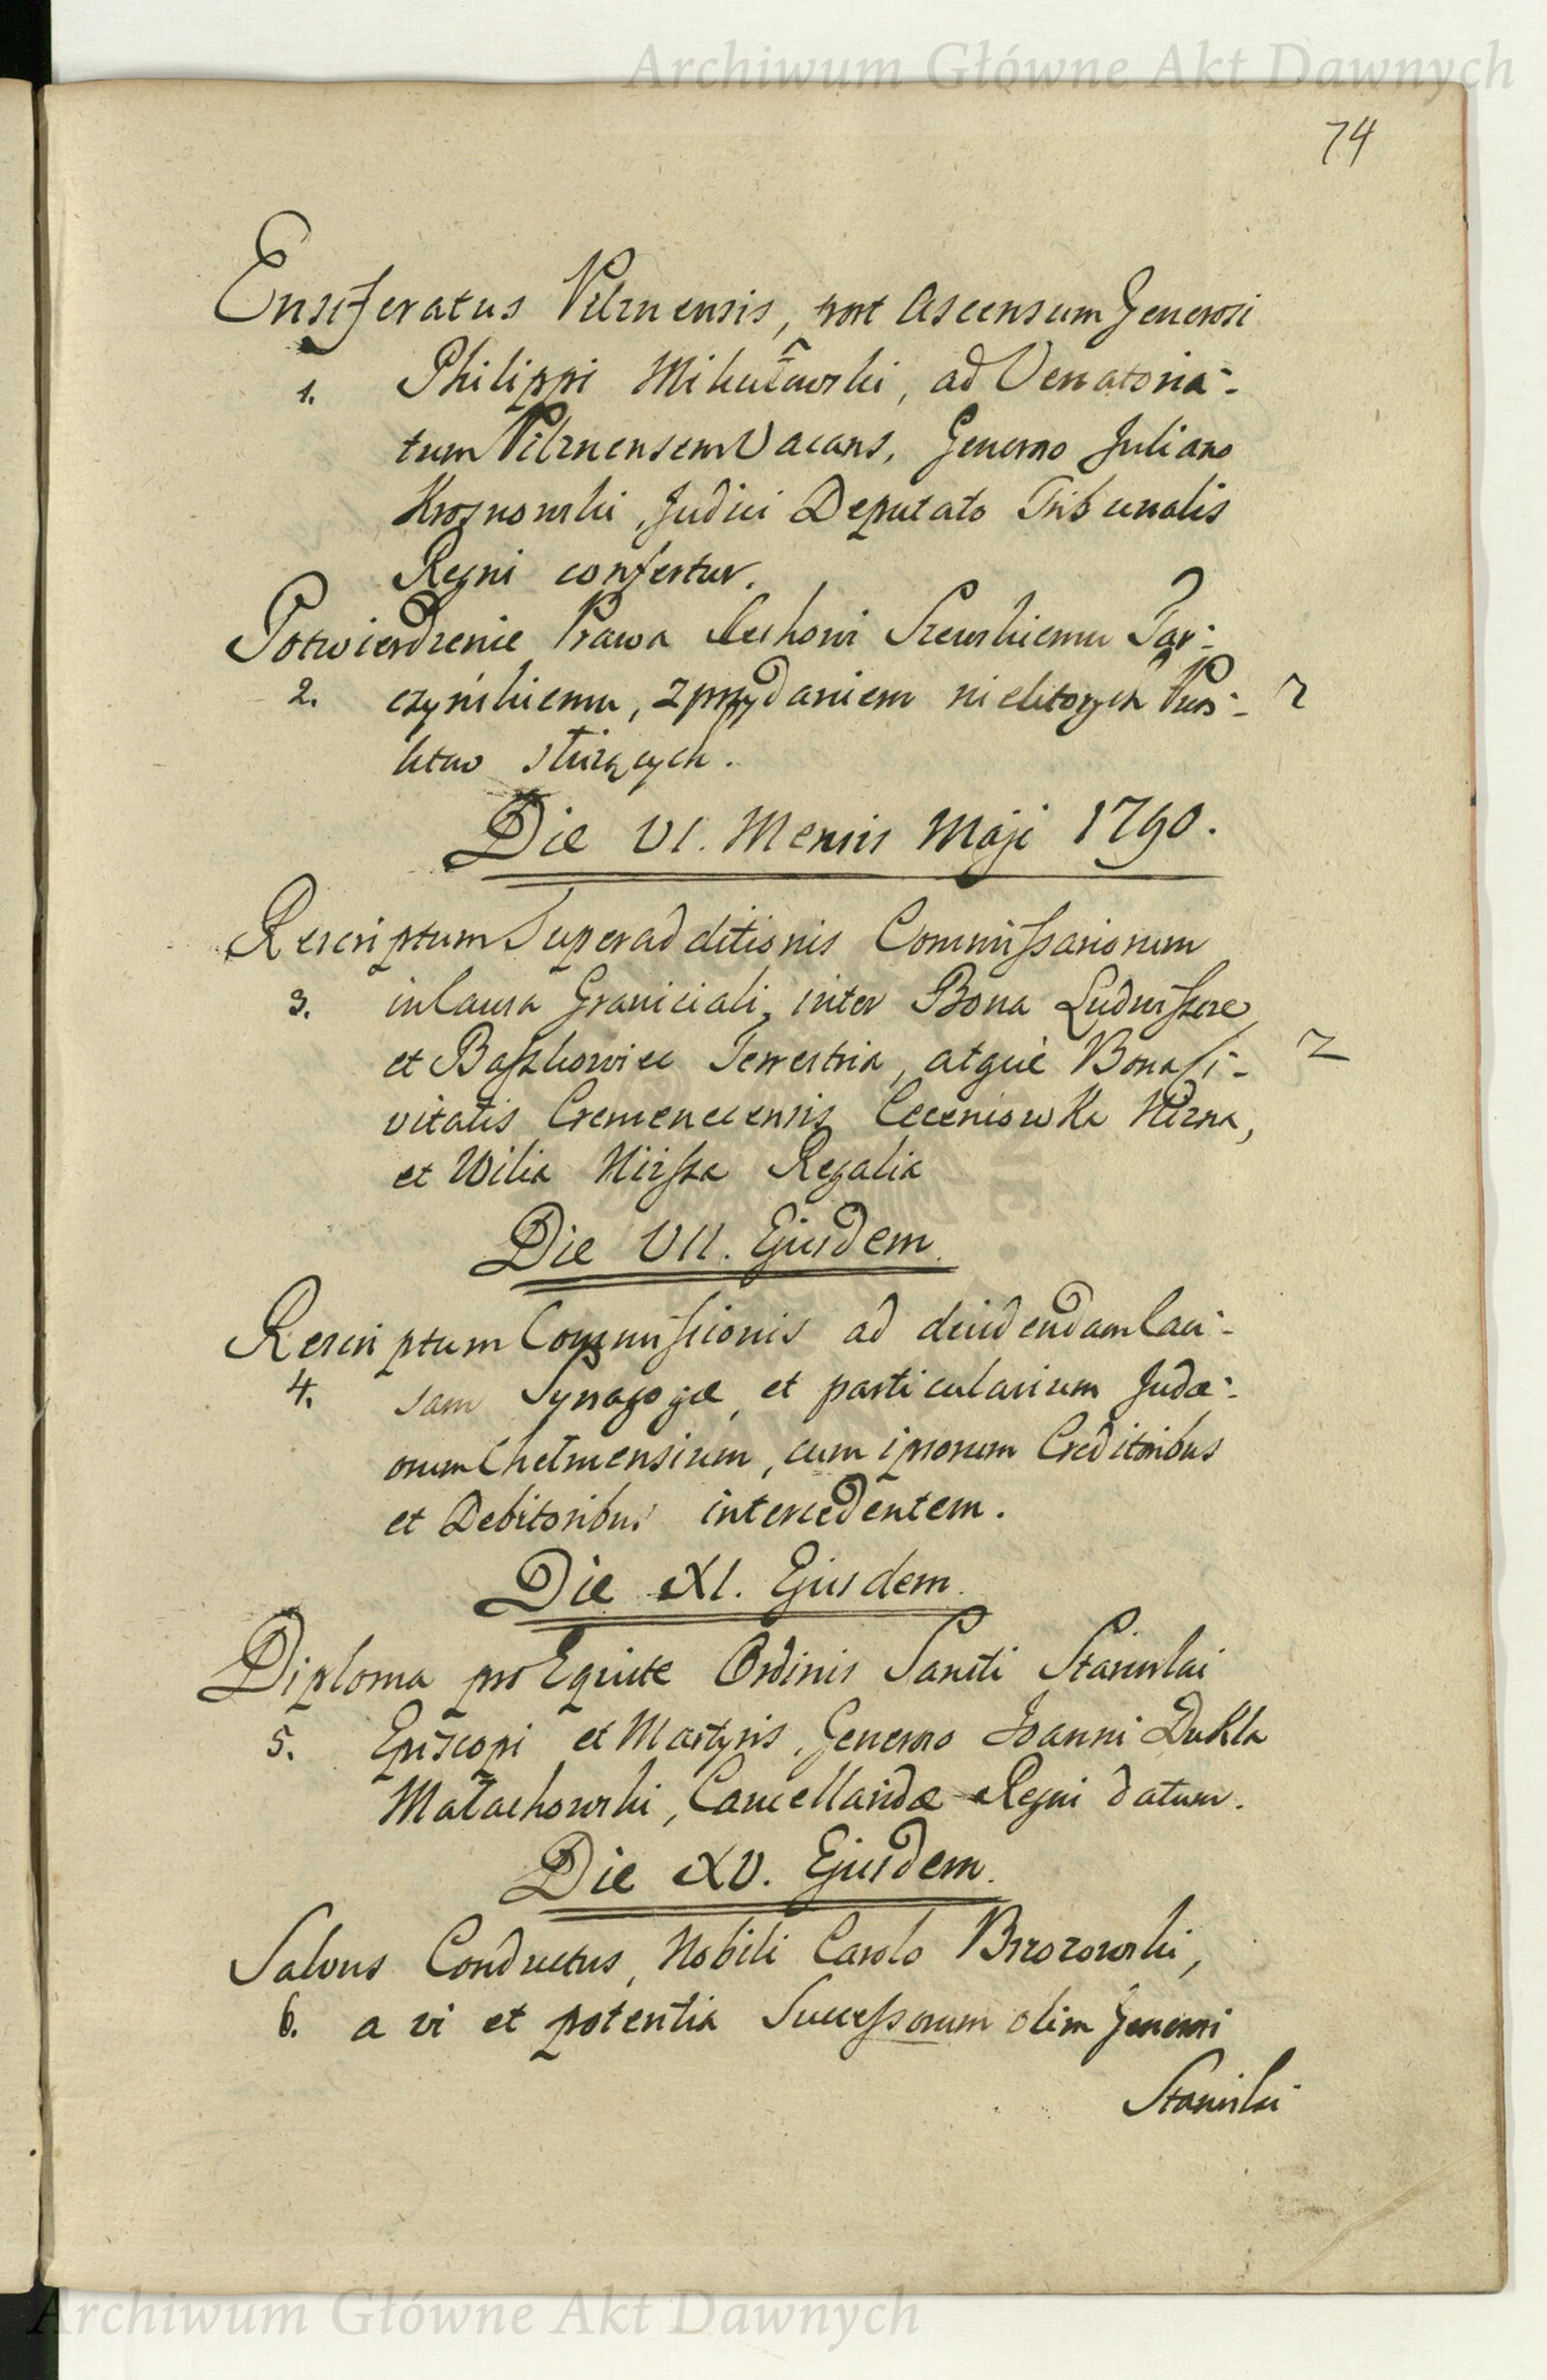 Archiwum Główne Akt Dawnych
74
Ensiferatus Pilznensis, post Ascensum Generosi
1. Philippi Mikułowski, ad Venatoria-
tum Pilznensem Vacans, Generoso Juliano
Krosnowski, Judici Deputato Tribunalis
Regni confertur.
Potwierdzenie Prawa Cechowi Szewskiemu Tar-
2. czyńskiemu, z przydaniem niektorych Pun-
ktow służących.
Die VI. Mensis Maji 1790.
Rescriptum Superadditionis Commissariorum
3. in Causa Graniciali, inter Bona
et Terrestria, atque Bona Ci-
vitatis Cremenecensis Niżna,
et Wilia Niższa Regalia
Die VII. Ejusdem.
Rescriptum Commissionis ad decidendam Cau-
4. sam Synagogæ, et particularium Judæ-
orum Chełmensium, cum ipsorum Creditoribus
et Debitoribus intercedentem.
Die XI. Ejusdem.
Diploma pro Equite Ordinis Sancti Stanislai
5. Episcopi et Martyris, Generoso Joanni Dukla
Małachowski, Cancellaridæ Regni datum.
Die XV. Ejusdem.
Salvus Conductus, Nobili Carolo Brzozowski,
6. a vi et potentia Successorum olim Generosi
Stanislai
Archiwum Główne Akt Dawnych